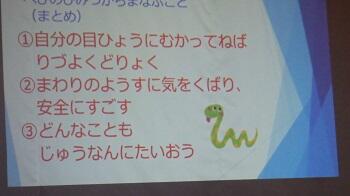 へびのひみつからまなぶこと
(まとめ)
①自分の目ひょうにむかってねば
りづよくどりょく
②まわりのようすに気をくばり、
安全にすごす
③どんなことも
じゅうなんにたいおう